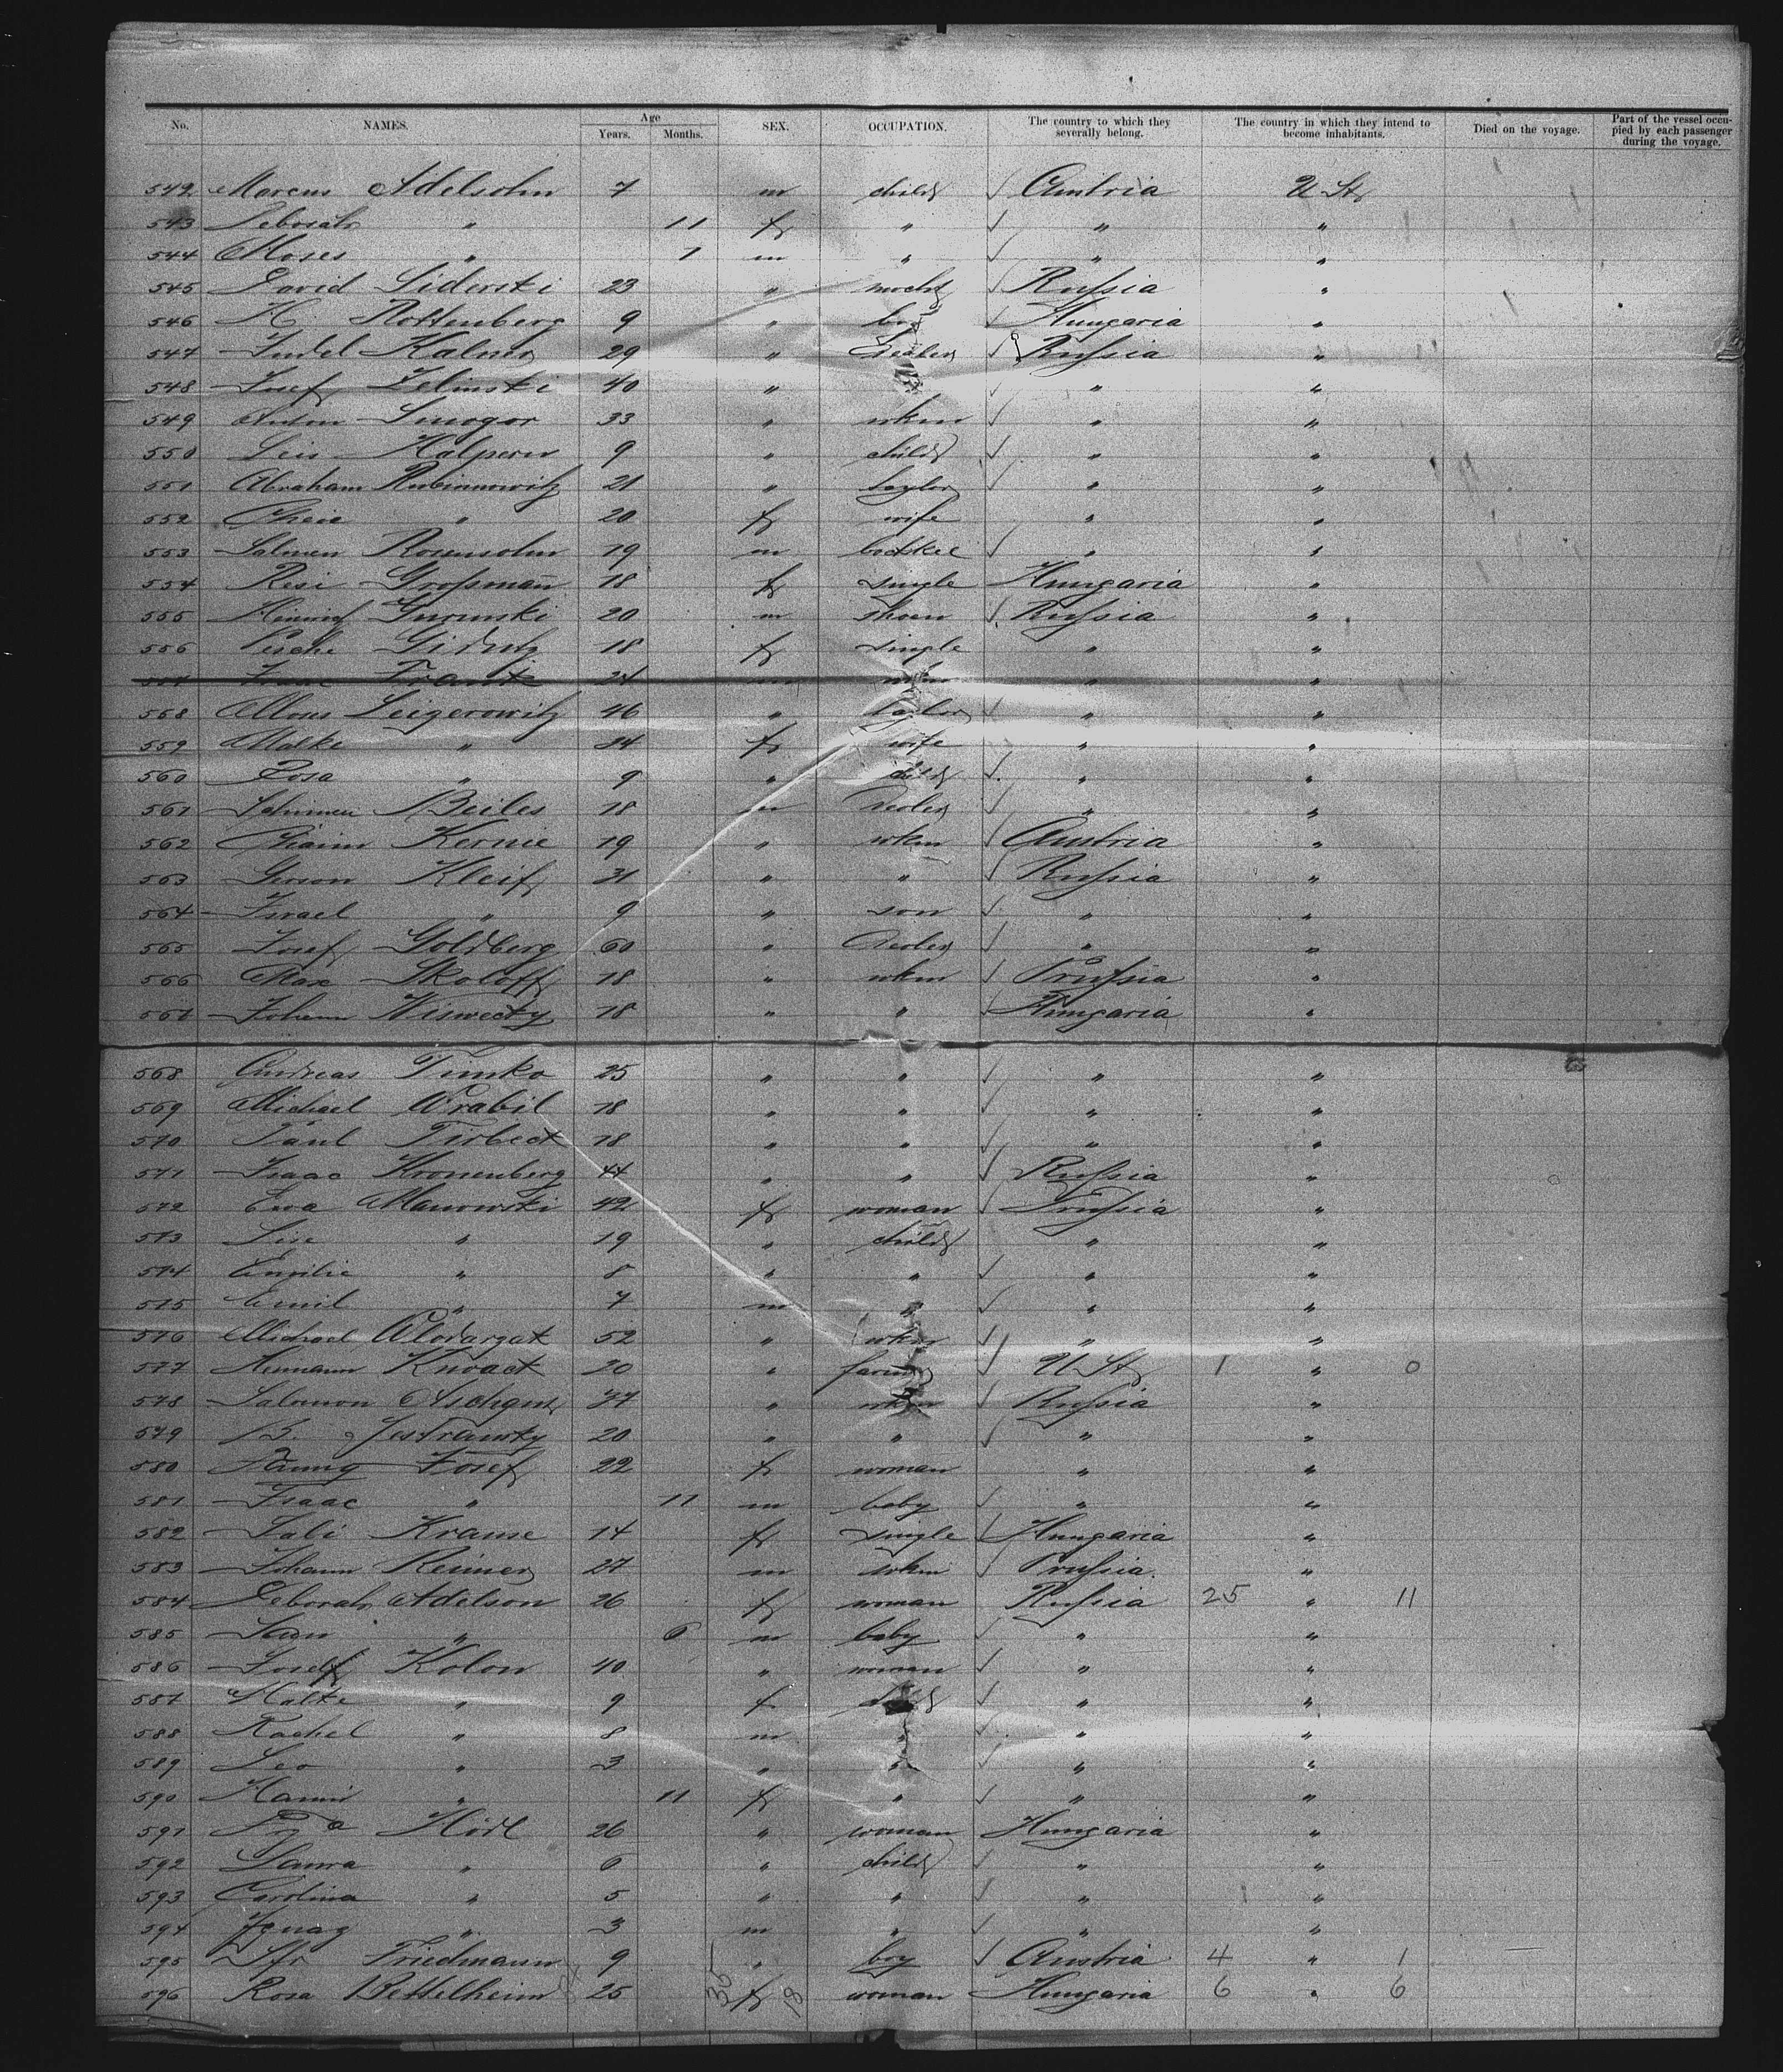 No. NAMES. Age Years. Months. SEX. OCCUPATION. The country to which they severally belong. The country in which they intend to become inhabitants. Died on the voyage. Part of the vessel occupied by each passenger during the voyage.
542 Marcus Adelsohn 7 m child ✓ Austria U St
543 Deborah " 11 f " ✓ " "
544 Moses " 1 m " ✓ " "
545 David Siderski 23 " mecht ✓ Russia "
546 H Rottenberg 9 " boy ✓ Hungaria "
547 Judel Kalmer 29 " Dealer ✓ Russia "
548 Josef Zelinski 40 " " ✓ " "
549 Anton 33 " wkm ✓ " "
550 Leis Halpern 9 " child ✓ " "
551 Abraham Rubinowitz 21 " taylor ✓ " "
552 " 20 f wife " "
553 Salmen Rosensohn 19 m bookkee ✓ " "
554 Resi Großmañ 18 f single Hungaria "
555 20 m shoem ✓ Russia "
556 Pesche 18 f single " "
Isaac Frank 24 m wkm " "
568 Moses Leigerowitz 46 " taylor ✓ " "
559 Malke " 34 f wife " "
560 Rosa " 9 " child ✓ " "
561 Beiles 18 m Dealer ✓ " "
562 Chaim Kernie 19 " wkm ✓ Austria "
563 Gerson Kleif 31 " " ✓ Russia "
564 Israel " 9 " son ✓ " "
565 Josef Goldberg 60 " Dealer ✓ " "
566 Max Skoloff 18 " wkm ✓ Prussia "
567 Johann 18 " " ✓ Hungaria "
568 Andreas Timko 25 " " ✓ " "
569 Michael Wrabil 18 " " ✓ " "
570 Paul Tirbeck 18 " " ✓ " "
571 Isaac Kronenberg 44 " " ✓ Russia "
572 Ewa Manowski 42 f woman ✓ Prussia "
573 Lise " 19 " child " "
574 Emilie " 8 " " ✓ " "
575 Emil " 7 m " ✓ " "
576 Michael 52 " wkm ✓ " "
577 Hermann Knaack 20 " farmer ✓ U St 1 " 0
578 Salomon 37 " wkm ✓ Russia "
579 B. 20 " " ✓ " "
580 Fanny Josef 22 f woman " "
581 Isaac " 11 m baby ✓ " "
582 Sali Krause 14 f single ✓ Hungaria "
583 Johann Reimer 27 m wkm ✓ Prussia "
584 Deborah Adelson 26 f woman Russia 25 " 11
585 " 6 m baby " "
586 Josef Kolon 40 " woman ✓ " "
587 Malke " 9 f child ✓ " "
588 Rachel " 8 m " ✓ " "
589 Leo " 3 " " ✓ " "
590 " 11 f " ✓ " "
591 26 " woman Hungaria "
592 Laura " 6 " child ✓ " "
593 Carolina " 5 " " ✓ " "
594 Ignaz " 3 m " ✓ " "
595 Friedmann 9 " boy ✓ Austria 4 " 1
596 Rosa Bettelheim 25 35 f 18 woman Hungaria 6 " 6